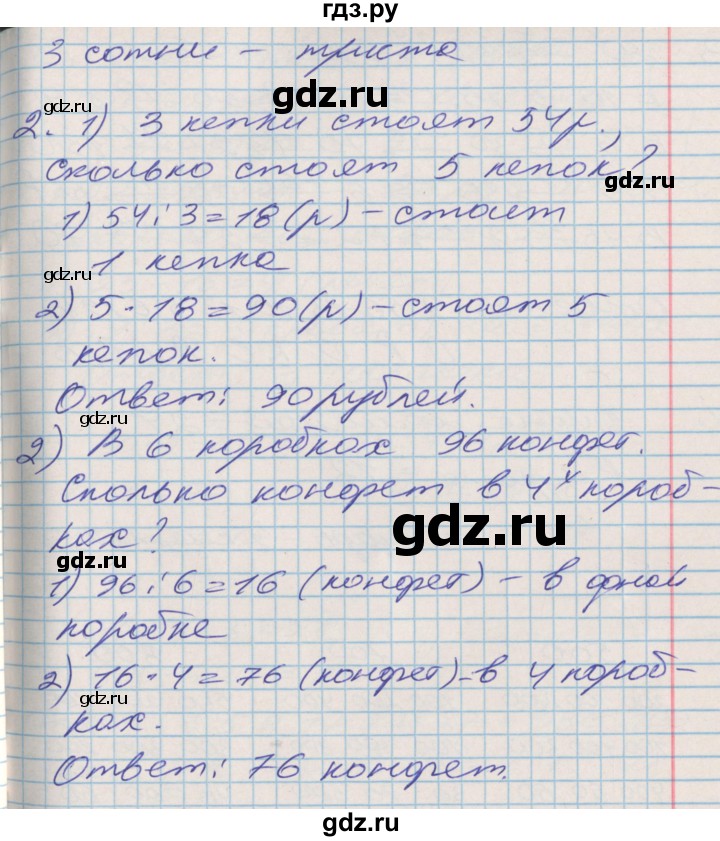 гдз.ру
3 сотни – триста
gdz.ru
gdz.ru
2. 1) 3 кепки стоят 54 р.,
Сколько стоят 5 кепок?
gdz.ru
1) 54 : 3 = 18 (р) – стоит
1 кепка
gdz.ru
2) 5 · 18 = 90 (р) – стоят 5
кепок.
Ответ: 90 рублей.
gdz.ru
2) В 6 коробках 96 конфет.
Сколько конфет в 4х короб-
ках?
gdz.ru
gdz.ru
1) 96 : 6 = 16 (конфет) – в одной
коробке
2) 16 · 4 = 76 (конфет) – в 4 короб-
gdz.ru
ках.
Ответ: 76 конфет.
gdz.ru
gdz.ru